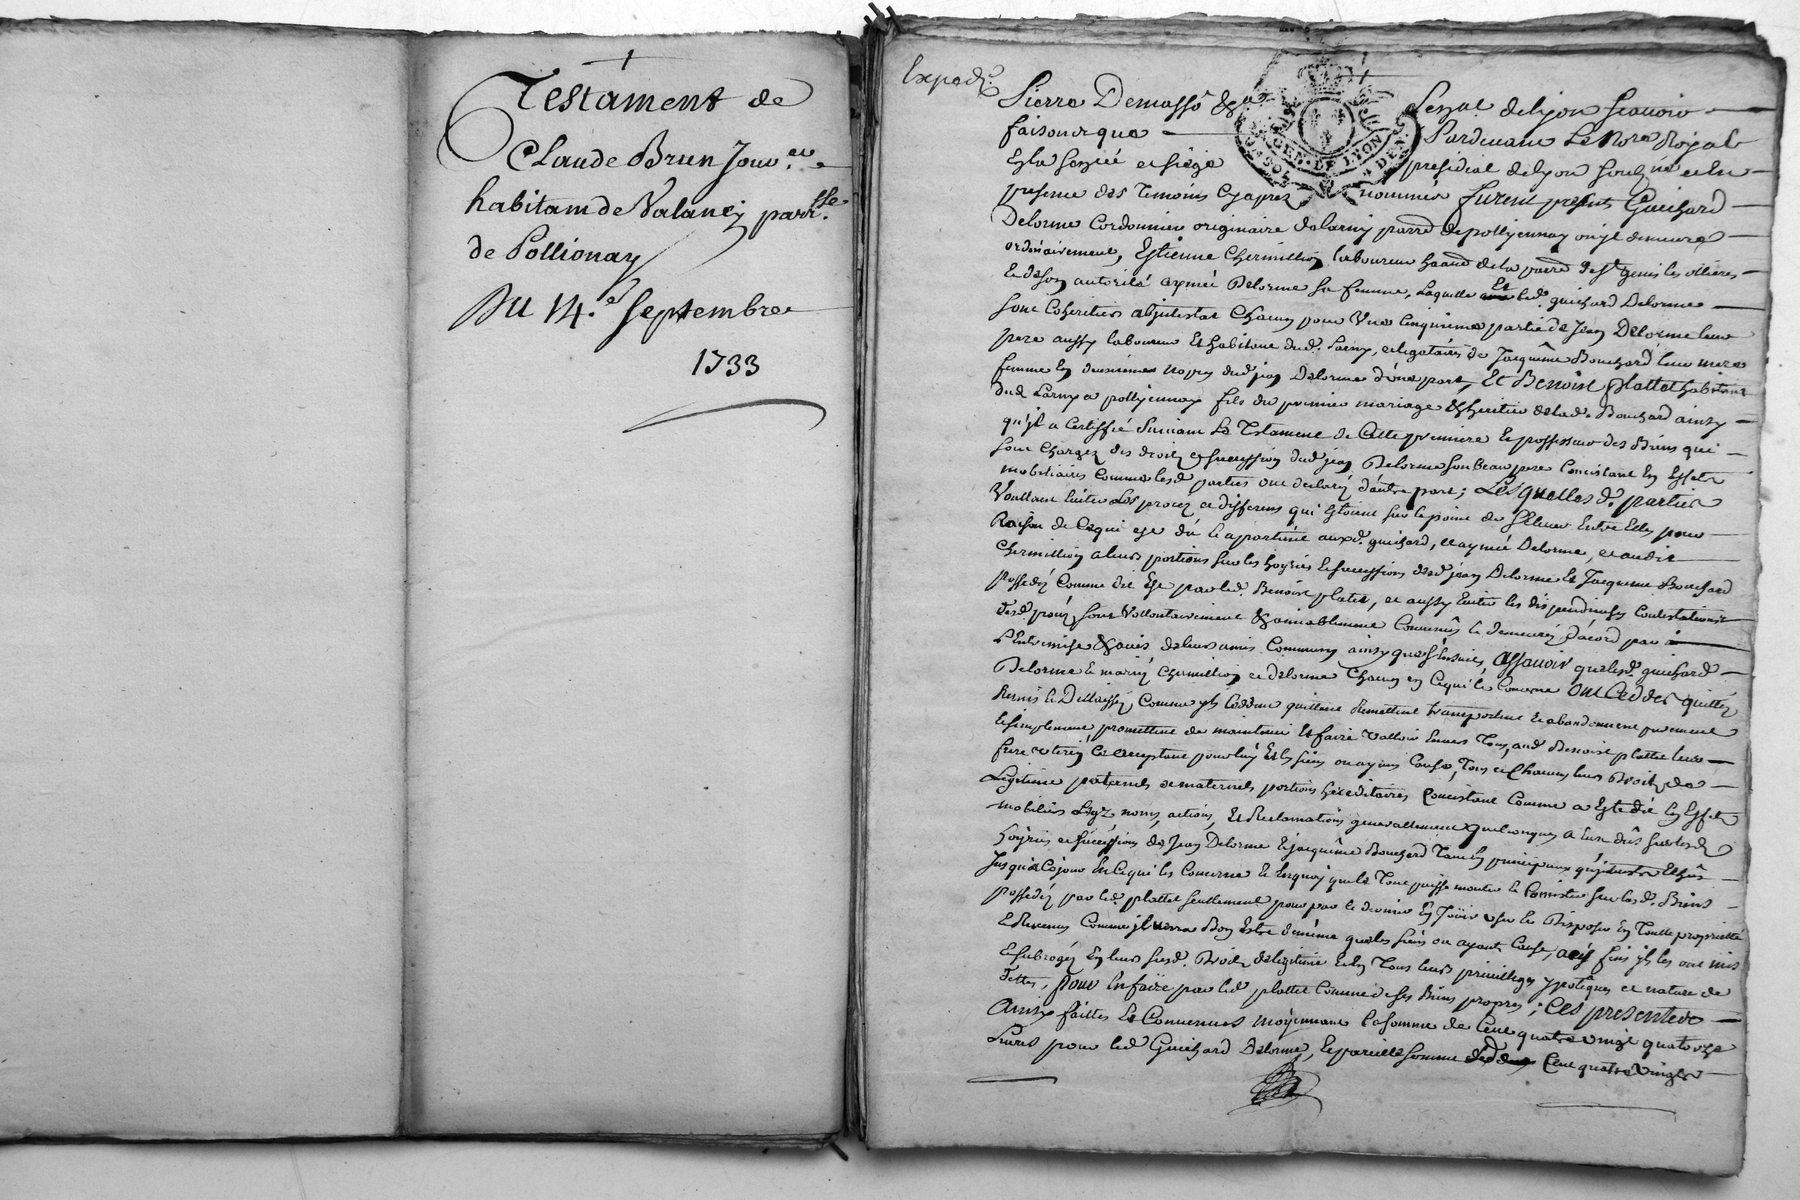 Testament de
Claude Brun Jouv.eu
habitant de Valancy parr.sse
de Pollionay
Du 14.e Septembre
1733
Expedié
Pierre Demasso &a
Senéal de lyon scavoir
faisons que
Pardevant Le No.re Royal
En la senéé et siege
presidial de lyon soubz.né et en
GEN. DE LYON
presence des temoins cyapres nommés furent presents Guichard
Delorme Cordonnier originaire de larny parr.e de pollyonnay ou yl demeure
ordinairement, Estienne Chermillion laboureur de la parr.e de S.t genis les ollieres
Et de son autorité aymée Delorme sa femme, Laquelle Et led. guichard Delorme
sont Coheritiers abjntestat Chacun pour Une Cinquieme partie de Jean Delorme leur
pere aussy laboureur Et habitant dud. Larny, et legataires de Jacquême Bouchard leur mere
femme En deuxiemes nopces dud. jean Delorme d'une part, Et Benoist plattet habitant
dud. Larny a pollyonnay fils du premier mariage & heritier de lad. Bouchard ainsy
qu'yl a Certiffié suivant Le Testament de Cette premiere Et possesseur des Biens qui
sont Chargez des droits et succession dud. jean Delorme son beau pere Concistant En Effets
mobiliaires Comme lesd. parties ont declaré d'autre part; Lesquelles d. parties
Voullant Eviter Les procez et differens qui Estoient sur le point de s'Elever Entre Elles pour
Raison de Ce qui est dû Et apartient auxd. guichard, et aymée Delorme, et audit
Chermillion a leurs portions sur les hoyries Et successions dud. jean Delorme Et Jacqueme Bouchard
possedés Comme dit Est par led. Benoist plattet, et aussy Eviter les dispendieuses Contestations
desd. procez, sont Vollontairement & amiablement Convenus Et demeurés d'acord par
L'Entremise & avis de leurs amis Communs ainsy que s'Ensuit, Assavoir que led. guichard
Delorme Et mariez Chermillion et delorme Chacun En Ce qui les Concerne Ont Cedder quitter
Remis Et Dellaissé, Comme yls Ceddent quittent Remettent transportent Et abandonnent purement
Et simplement promettent de maintenir Et faire Valloir Envers Tous, aud. Benoist plattet leur
frere uterin Ce acceptant pour luy Et les siens ou ayans Cause, Tous et Chacuns leurs Droits de
Legitime paternels et maternels portions hereditaires Concistant Comme a Esté dit En Effets
mobiliers noms, actions, Et Reclamations generallement quelconques a Eux dûs sur lesd.
hoyries et successions de Jean Delorme Et jacquême Bouchard Tant En principaux qu'jnterests
Jusqu'a Ce jour En Ce qui les Concerne Et En quoy que le Tout puisse monter Et Concister sur lesd. Biens
possedés par led. plattet seullement pour par Ce dernier En Joüir user Et Disposer En Toutte proprieté
Et Revenus Comme jl verra Bon Estre de même que les siens ou ayants Cause, a Ces fins yls les ont mis
Et subrogés En leurs susd. Droits de legitime Et En Tous leurs privilleges ypotêques et nature de
dettes, pour En faire par led. plattet Comme de ses Biens propres; Ces presentes
Ainsy faittes Et Convenues moyennant la somme de Cent quatre vingt quatorze
Livres pour led. Guichard Delorme, Et pareille somme de Cent quatre vingt